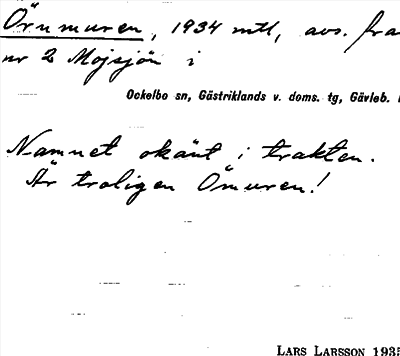 Örnmuren, 1934 mtl, avs. fra
nr 2 Mojsjön i
Ockelbo sn, Gästriklands v. doms. tg, Gävleb. l
Namnet okänt i trakten.
Är troligen Ömuren!
LARS LARSSON 1935